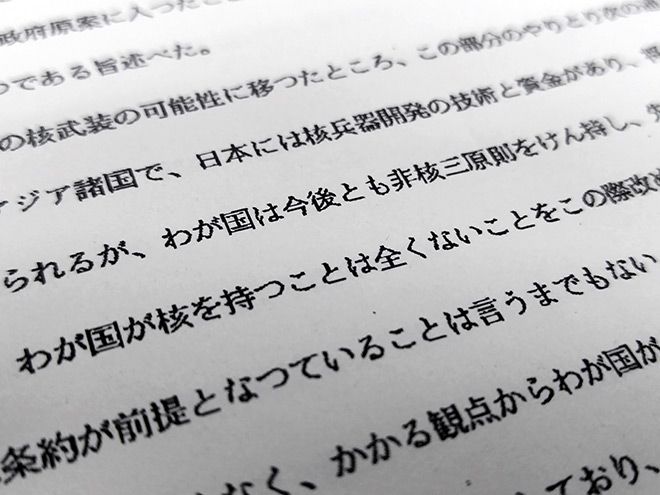 政府原案に入つたこ
つである旨述べた。
の核武装の可能性に移つたところ、この部分のやりとり次の通
アジア諸国で、日本には核兵器開発の技術と資金があり、
られるが、わが国は今後とも非核三原則をけん持し、
わが国が核を持つことは全くないことをこの際改
条約が前提となつていることは言うまでもない
なく、かかる観点からわが国が
ており、